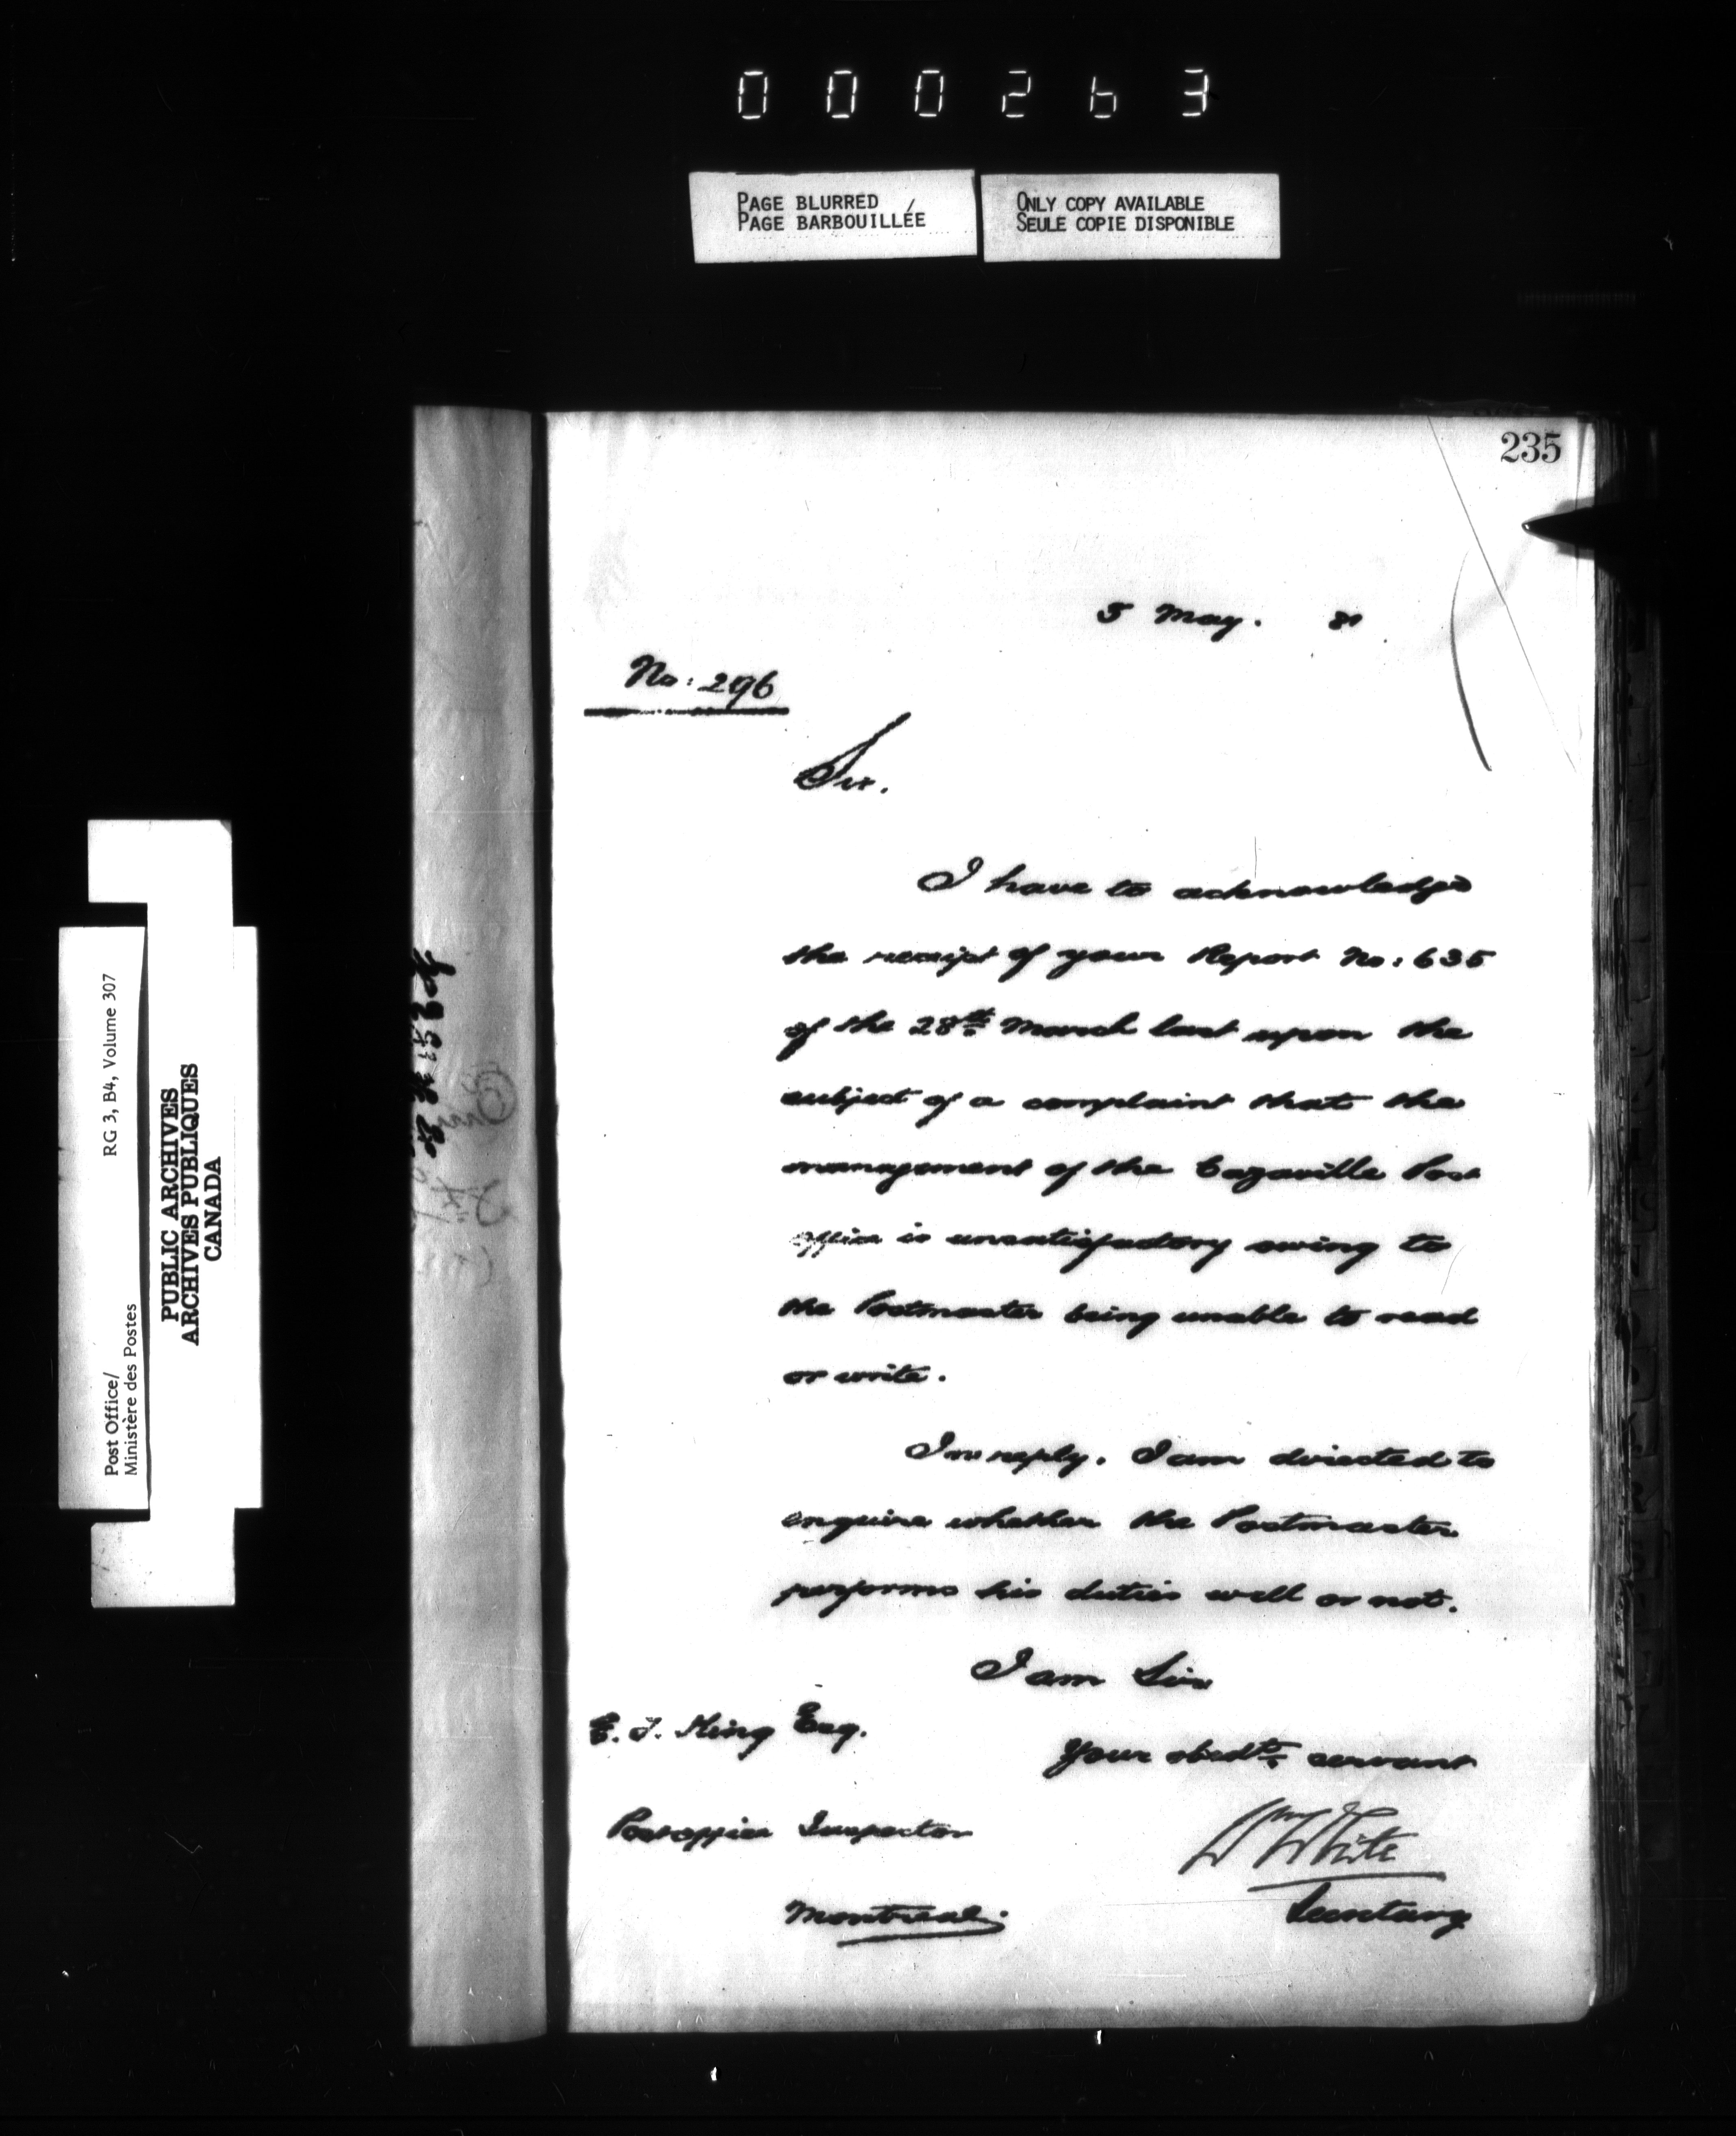 000263
PAGE BLURRED
PAGE BARBOUILLÉE
ONLY COPY AVAILABLE
SEULE COPIE DISPONIBLE
235
5 May. 81
No: 296
Sir.
I have to acknowledge
the receipt of your Report No: 635
of the 28th March last upon the
subject of a complaint that the
management of the Cazaville Post
office is unsatisfactory owing to
the Postmaster being unable to read
or write.
In reply. I am directed to
enquire whether the Postmaster
performs his duties well or not.
I am Sir
Your obedt. servant
Wm White
Secretary
E. F. King Esq.
Post office Inspector
Montreal.
Post Office/
Ministère des Postes
RG 3, B4, Volume 307
PUBLIC ARCHIVES
ARCHIVES PUBLIQUES
CANADA